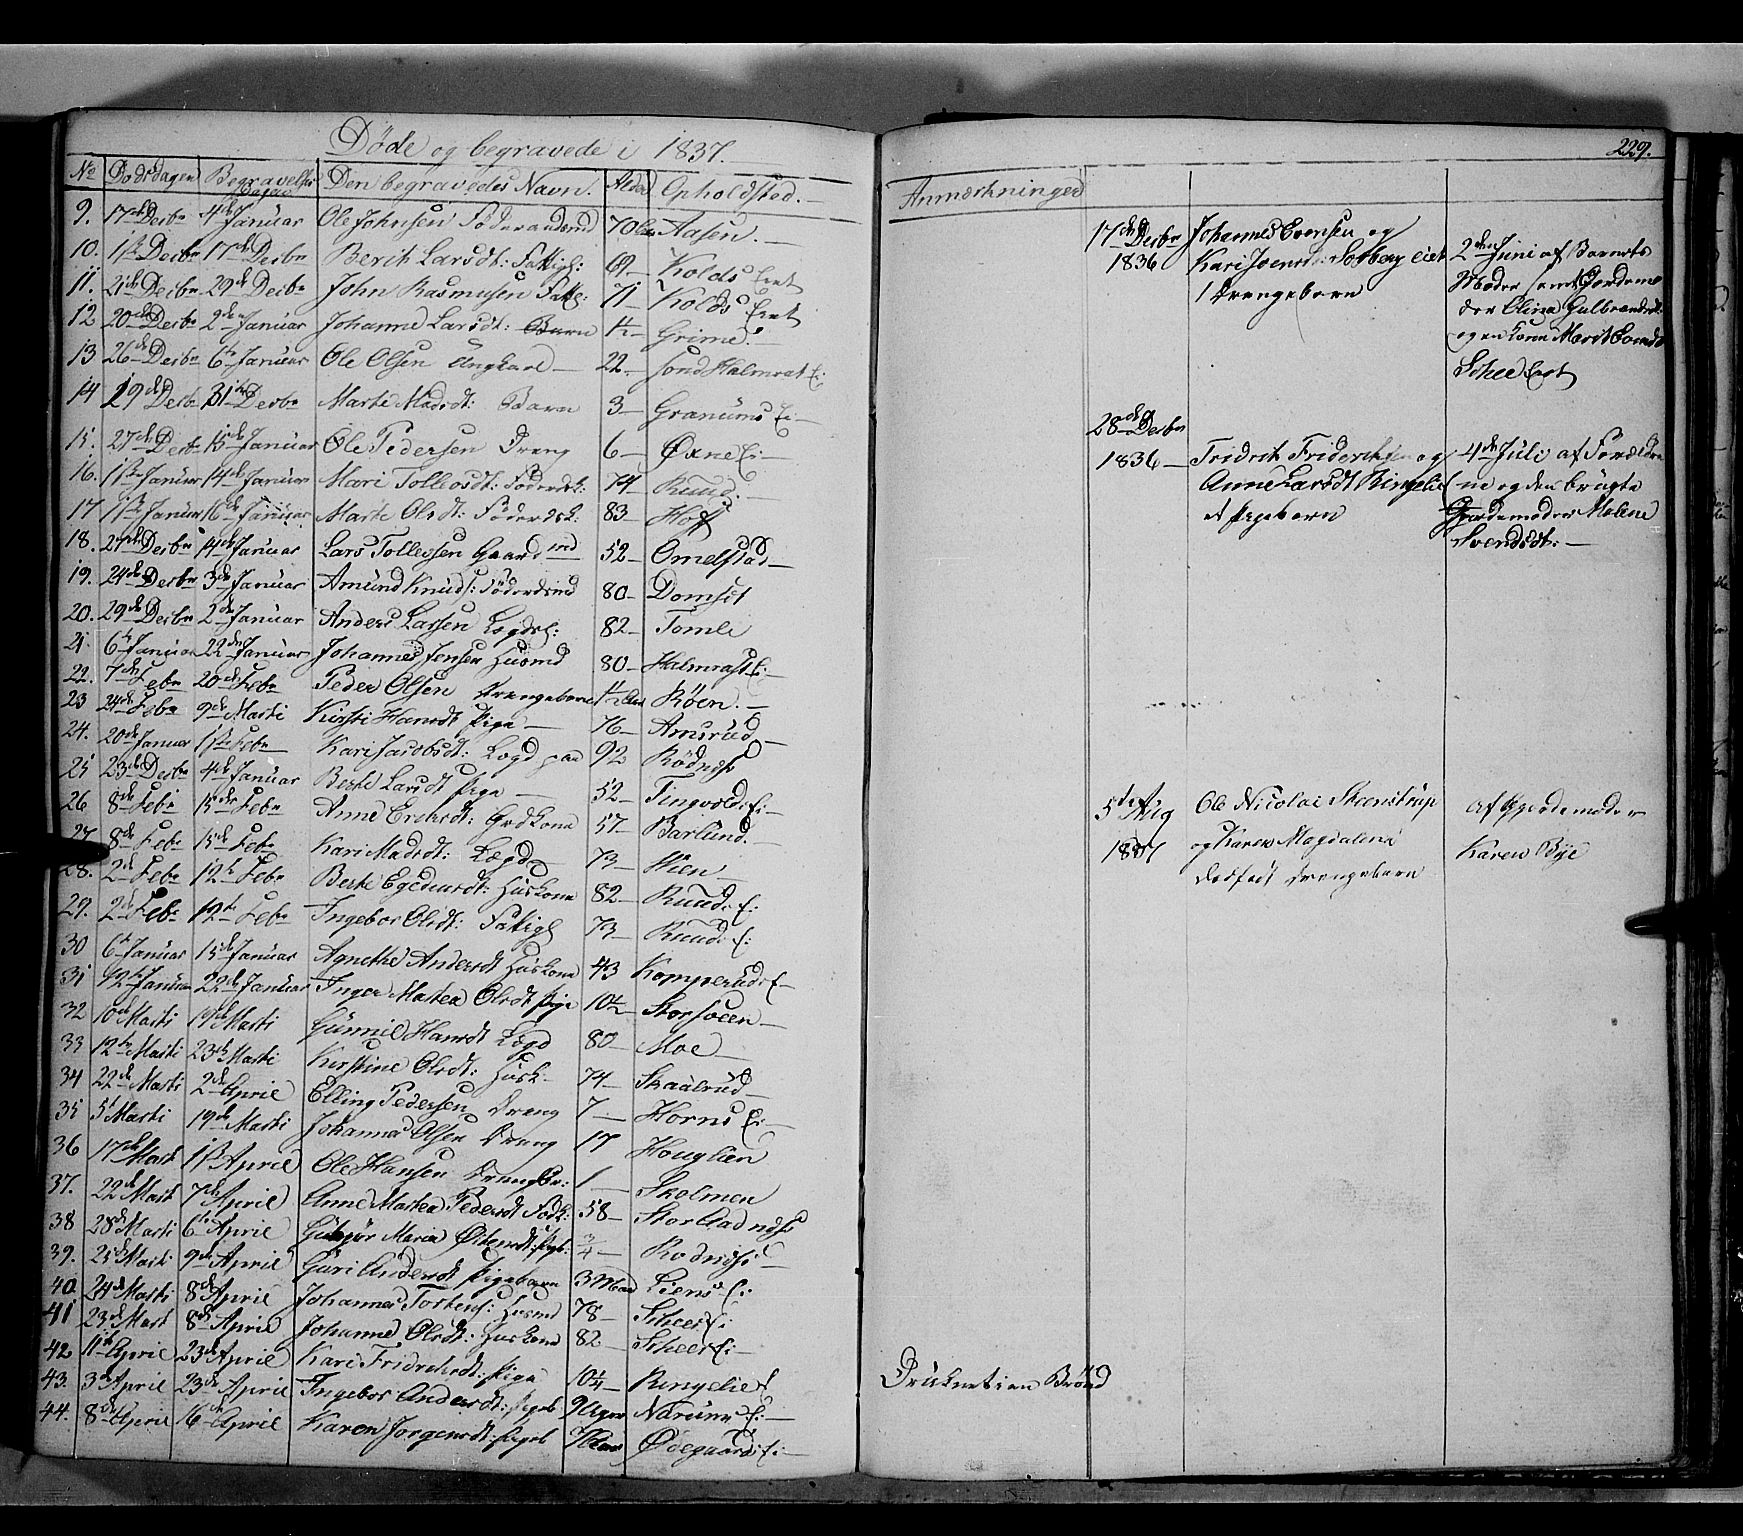 Døde og begravede i 1837.
No Dødsdagen Begravelses Dagen Den begravedes Navn. Alder Opholdsted.
9. 17de Decbr 4de Januar Ole Johnsen Föderaadsmd 70 Aar Aasen.
10. 1ste Decbr 17de Decbr Berit Larsdt: Fattigl: 69 Kolds Eiet
11. 21de Decbr 29de Decbr John Rasmusen Fattg: 71 Kolds Eiet
12 20de Decbr 2de Januar Johanne Larsdt: Barn ½ Grime.
13 26de Decbr 6te Januar Ole Olsen Ungkarl 22 Sönd Halmrast E:
14 29de Decbr 31te Decbr Marte Madsdt: Barn 3 Granums E:
15. 27de Decbr 15de Januar Ole Pedersen Dreng 6 Øxne E:
16. 11te Januar 14de Januar Mari Tollevsdt: Föderdsk: 74 Ruud.
17 11te Januar 16de Januar Marte Olsdt: Föderdsk: 83 Hoff
18. 27de Decbr 14de Januar Lars Tollevsen Gaardmd 52 Omelstad
19. 24de Decbr 3de Januar Amund Knuds: Föderdsmd 80 Domset
20. 29de Decbr 2de Januar Anders Larsen Legdsl: 82 Tomle
21. 6te Januar 22de Januar Johannes Jensen Husmd 80 Halmrast E:
22. 7de Febr 20de Febr Peder Olsen Drengebarn ½ Aar Røen.
23 24de Febr 9de Marti Kirsti Hansdt Pige 76 Amsrud
24. 20de Januar 1ste Febr Kari Jacobsdt: Legd 92 Rødnæs
25 23de Decbr 4de Januar Berte Larsdt Pige 52 Tingvold E:
26 8de Febr 15de Febr Anne Erichsdt: Grdkone 57 Barlund.
27. 8de Febr 15de Febr Kari Madsdt: Lægd 73 Wien
28. 2de Febr 12te Febr Berte Egeduardt: Huskone 82 Ruuds E:
29. 2de Febr 12te Febr Ingebor Olsdt: Fattigl 73 Ruuds E:
30 6te Januar 15de Januar Agnethe Andersdt Huskone 43 Komperud E
31 12te Januar 22de Januar Inger Martea Olsdt Pige 10½ Storsveen
32 10de Marti 19de Marti Gunnil Hansdt Legd 80 Moe
33 12te Marti 23de Marti Kirstine Olsdt: Husk 74 Skaalrud
34 22de Marti 2de April Elling Pedersen Dreng 7 Horns E:
35 5te Marti 19de Marti Johannes Olsen Dreng 17 Houglien
36 17de Mart 11te April Ole Hansen Drengbr: 1 Skolmen
37. 22de Mart 7de April Anne Martea Pedersdt Födk: 58 Stor Aadnæs
38 28de Marti 6te April Maria Pigb: ¾
39. 25de Marti 9de April Guri Andersdt Pigebarn 3 Maad Liens E:
40. 24de Marti 8de April Johannes Torstens: Husmd 78 Schees E:
41 23de Mart 8de April Johanne Olsdt: Huskone 82 Schees E:
42 11te April 23de April Kari Fridrichsdt: Pige 10¼ Ringelie E
43. 3de April 23de April Ingebor Andersdt: Pigeb 9 Uger Narum E:
44. 8de April 16de April Karen Jörgensdt: Pigeb Ødegaards E:
229.
Anmærkninger
Druknet i en Brönd
17de Decbr 1836
Johannes Evensen og
Kari Ivers: Solberg eiet
1 Drengebarn
2den Juni af Barnets
Moder samt Jordemo
der Olina Gulbrandsdt
og en kone Marit
Schee Eiet
28de Decbr
1836
Fridrik Friderichsen og
Anne Larsdt Ringelie E
et Pigebarn
4de Juli af Forældre
ne og den brugte
Gjordemoder Malene
Svendsdt:
5te Aug
1837
Ole Nicolai Steenstrup
og Karen Magdalena
dødfødt Drengebarn
af Gjordemoder
Karen Bye